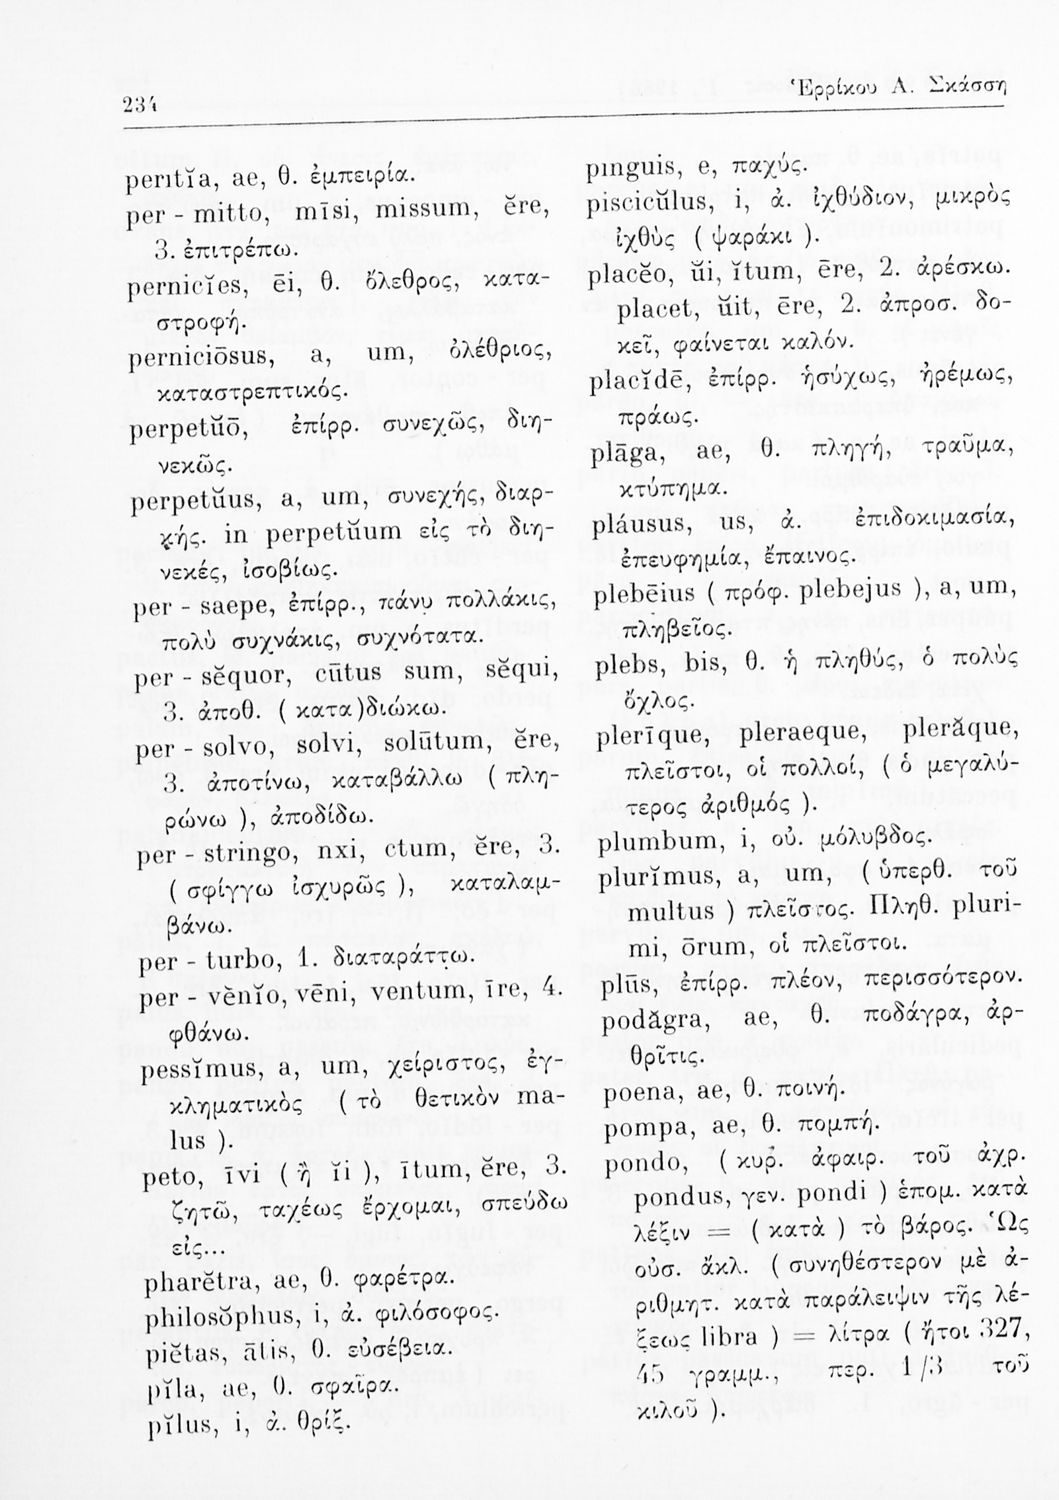 234
Ἑρρίκου Α. Σκάσση
peritĭa, ae, θ. ἐμπειρία.
per - mitto, mīsi, missum, ĕre,
3. ἐπιτρέπω.
pernicĭes, ēi, θ. ὄλεθρος, κατα-
στροφή.
perniciōsus, a, um, ὀλέθριος,
καταστρεπτικός.
perpetŭō, ἐπίρρ. συνεχῶς, διη-
νεκῶς.
perpetŭus, a, um, συνεχής, διαρ-
κής. in perpetŭum εἰς τὸ διη-
νεκές, ἰσοβίως.
per - saepe, ἐπίρρ., πάνυ πολλάκις,
πολὺ συχνάκις, συχνότατα.
per - sĕquor, cūtus sum, sĕqui,
3. ἀποθ. ( κατα)διώκω.
per - solvo, solvi, solūtum, ĕre,
3. ἀποτίνω, καταβάλλω ( πλη-
ρώνω ), ἀποδίδω.
per - stringo, nxi, ctum, ĕre, 3.
( σφίγγω ἰσχυρῶς ), καταλαμ-
βάνω.
per - turbo, 1. διαταράττω.
per - vĕnĭo, vēni, ventum, īre, 4.
φθάνω.
pessĭmus, a, um, χείριστος, ἐγ-
κληματικὸς ( τὸ θετικὸν ma-
lus ).
peto, īvi ( ἢ ĭi ), ītum, ĕre, 3.
ζητῶ, ταχέως ἔρχομαι, σπεύδω
εἰς...
pharĕtra, ae, θ. φαρέτρα.
philosŏphus, i, ἀ. φιλόσοφος.
piĕtas, ātis, θ. εὐσέβεια.
pĭla, ae, θ. σφαῖρα.
pĭlus, i, ἀ. θρίξ.
pinguis, e, παχύς.
piscicŭlus, i, ἀ. ἰχθύδιον, μικρὸς
ἰχθὺς ( ψαράκι ).
placĕo, ŭi, ĭtum, ēre, 2. ἀρέσκω.
placet, ŭit, ēre, 2. ἀπροσ. δο-
κεῖ, φαίνεται καλόν.
placĭdē, ἐπίρρ. ἡσύχως, ἠρέμως,
πράως.
plāga, ae, θ. πληγή, τραῦμα,
κτύπημα.
pláusus, us, ἀ. ἐπιδοκιμασία,
ἐπευφημία, ἔπαινος.
plebēius ( πρόφ. plebejus ), a, um,
πληβεῖος.
plebs, bis, θ. ἡ πληθύς, ὁ πολὺς
ὄχλος.
plerīque, pleraeque, plerăque,
πλεῖστοι, οἱ πολλοί, ( ὁ μεγαλύ-
τερος ἀριθμός ).
plumbum, i, οὐ. μόλυβδος.
plurĭmus, a, um, ( ὑπερθ. τοῦ
multus ) πλεῖστος. Πληθ. pluri-
mi, ōrum, οἱ πλεῖστοι.
plūs, ἐπίρρ. πλέον, περισσότερον.
podăgra, ae, θ. ποδάγρα, ἀρ-
θρῖτις.
poena, ae, θ. ποινή.
pompa, ae, θ. πομπή.
pondo, ( κυρ. ἀφαιρ. τοῦ ἀχρ.
pondus, γεν. pondi ) ἑπομ. κατὰ
λέξιν = ( κατὰ ) τὸ βάρος. Ὡς
οὐσ. ἄκλ. ( συνηθέστερον μὲ ἀ-
ριθμητ. κατὰ παράλειψιν τῆς λέ-
ξεως libra ) = λίτρα ( ἤτοι 327,
45 γραμμ., περ. 1/3 τοῦ
κιλοῦ ).